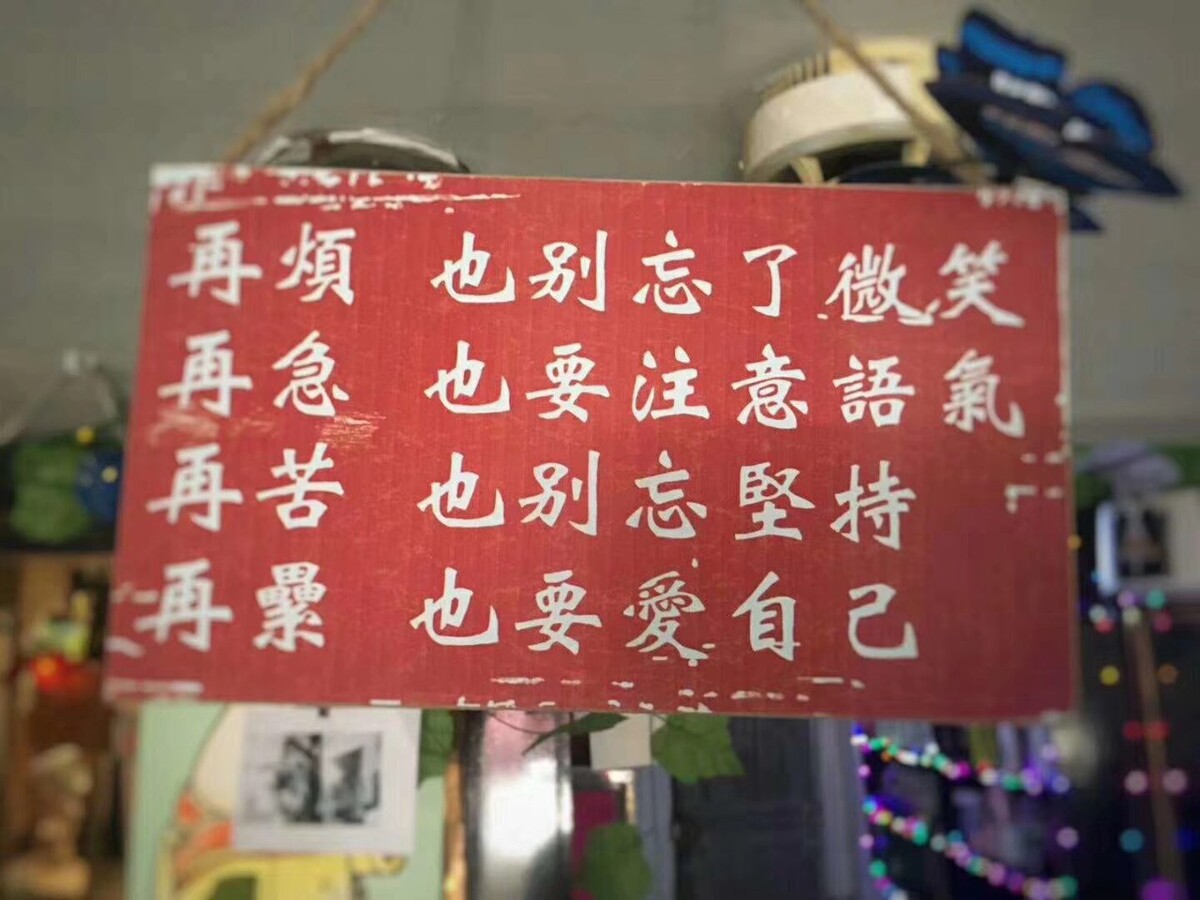 再煩 也别忘了微笑
再急 也要注意語氣
再苦 也别忘堅持
再纍 也要愛自己